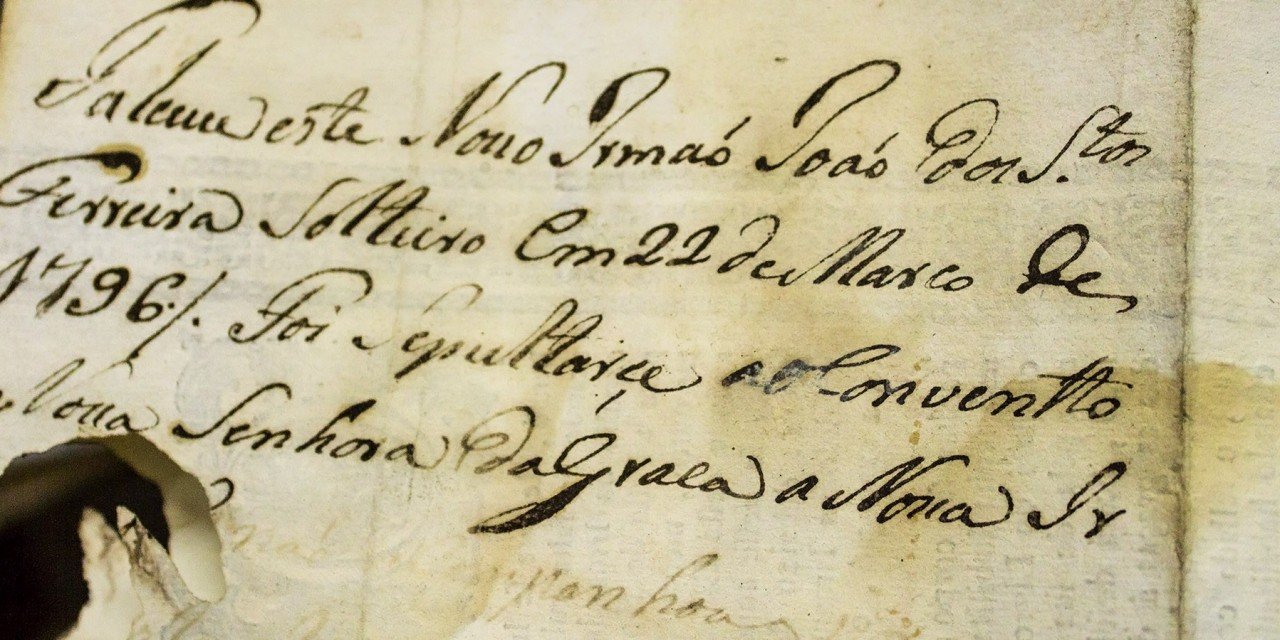 Faleceu este Noso Irmaó Joaó dos S.tos
Ferreira Soltteiro Em 22 de Marco de
1796/. Foi Sepulttarçe ao Conventto
de Nosa Senhora da Graca a Nosa Ir
panhou